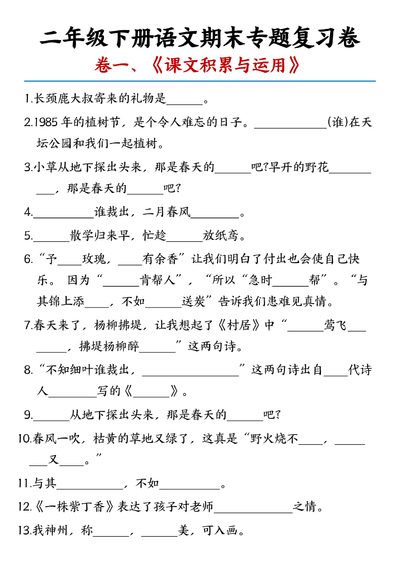 二年级下册语文期末专题复习卷
卷一、《课文积累与运用》
1.长颈鹿大叔寄来的礼物是______。
2.1985年的植树节，是个令人难忘的日子。____________(谁)在天
坛公园和我们一起植树。
3.小草从地下探出头来，那是春天的______吧?早开的野花_______
___，那是春天的______吧?
4.__________谁裁出，二月春风________。
5.______散学归来早，忙趁______放纸鸢。
6.“予____玫瑰，____有余香”让我们明白了付出也会使自己快
乐。 因为“______肯帮人”，“所以“急时______帮”。“与
其锦上添____，不如______送炭”告诉我们患难见真情。
7.春天来了，杨柳拂堤，让我想起了《村居》中“______莺飞___
_____，拂堤杨柳醉______”这两句诗。
8.“不知细叶谁裁出，________________”这两句诗出自____代诗
人________写的《______》。
9.______从地下探出头来，那是春天的______吧?
10.春风一吹，枯黄的草地又绿了，这真是“野火烧不____，_____
___又____。”
11.与其__________，不如__________。
12.《一株紫丁香》表达了孩子对老师_____________之情。
13.我神州，称______，______美，可入画。